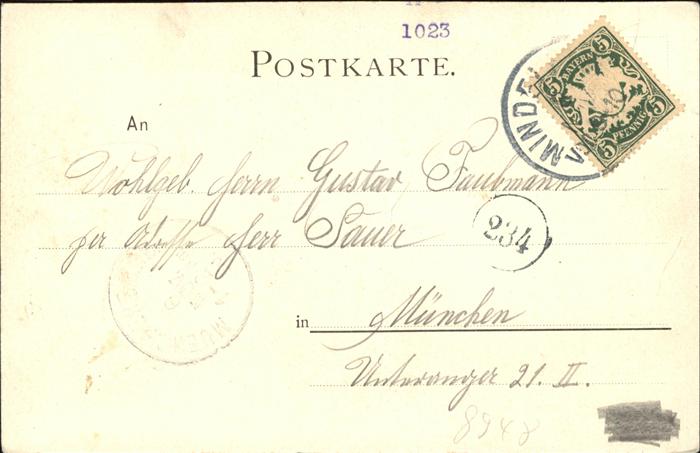 1023
POSTKARTE.
5 BAYERN 5
5 PFENNIG 5
MINDE
An
Wohlgeb. Herrn Gustav Faulmann
per Adresse Herr Sauer
234
MUE
in München
Unteranger 21. II.
8948